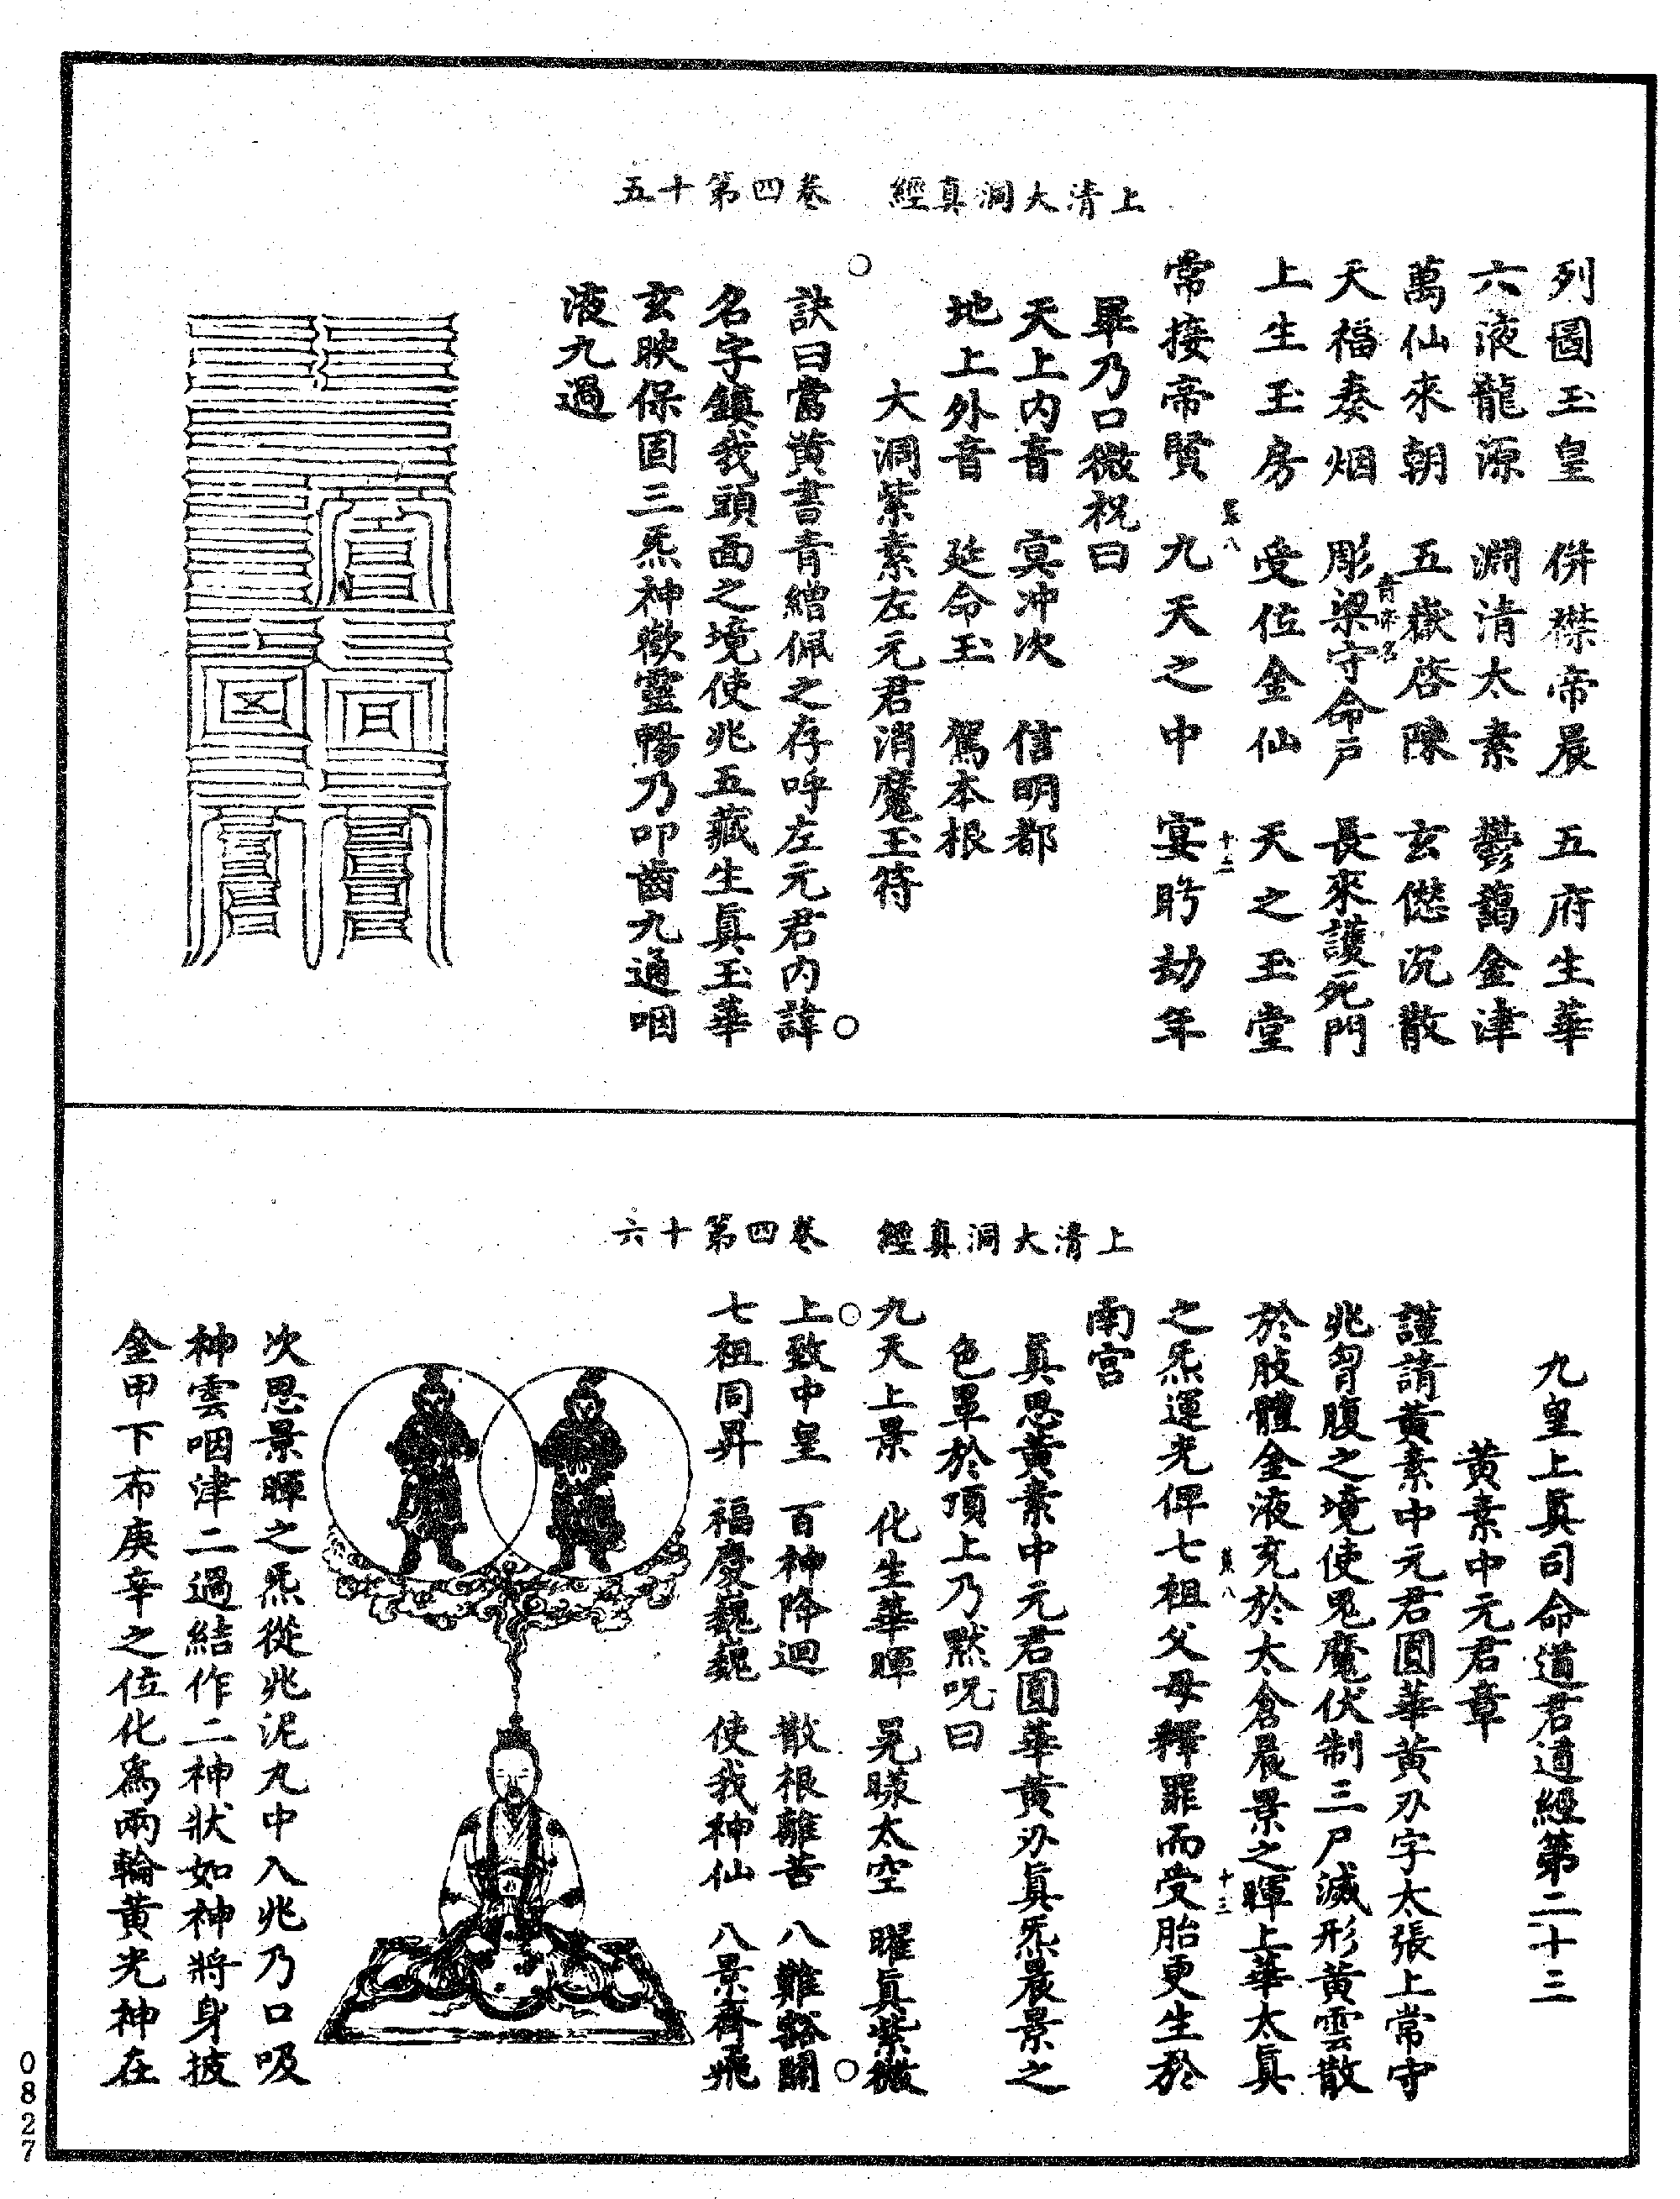 上清大洞真經　卷四第十五
列圖玉皇　併襟帝晨　五府生華
六液龍源　淵清太素　鬱藹金津
萬仙來朝　五嶽啓陳　玄㒟沉散
天福奏烟　彫梁守命戶　長來護死門
上生玉房　受位金仙　天之玉堂
常接帝賢　九天之中　宴眄劫年
畢乃口微祝曰
天上內音　㝠冲次　信明都
地上外音　延命玉　駕本根
大洞紫素左元君消魔玉符
訣曰當黃書青繒佩之存呼左元君內諱
名字鎮我頭面之境使兆五藏生眞玉華
玄映保固三炁神歡靈暢乃叩齒九通咽
液九過
上清大洞真經　卷四第十六
九皇上眞司命道君道經第二十三
黃素中元君章
謹請黃素中元君圓華黃刃字太張上常守
兆胷腹之境使鬼魔伏制三尸滅形黃雲散
於肢體金液充於太倉晨景之暉上華太眞
之炁運光俾七祖父母釋罪而受胎更生於
南宮
眞思黃素中元君圓華黃刃眞炁晨景之
色罩於頂上乃黙呪曰
九天上景　化生華暉　晃曚太空　曜眞紫微
上致中皇　百神降迴　散根離苦　八難豁開
七祖同昇　福慶巍巍　使我神仙　八景齊飛
次思景暉之炁從兆泥丸中入兆乃口吸
神雲咽津二過結作二神狀如神將身披
金甲下布庚辛之位化爲兩輪黃光神在
0827